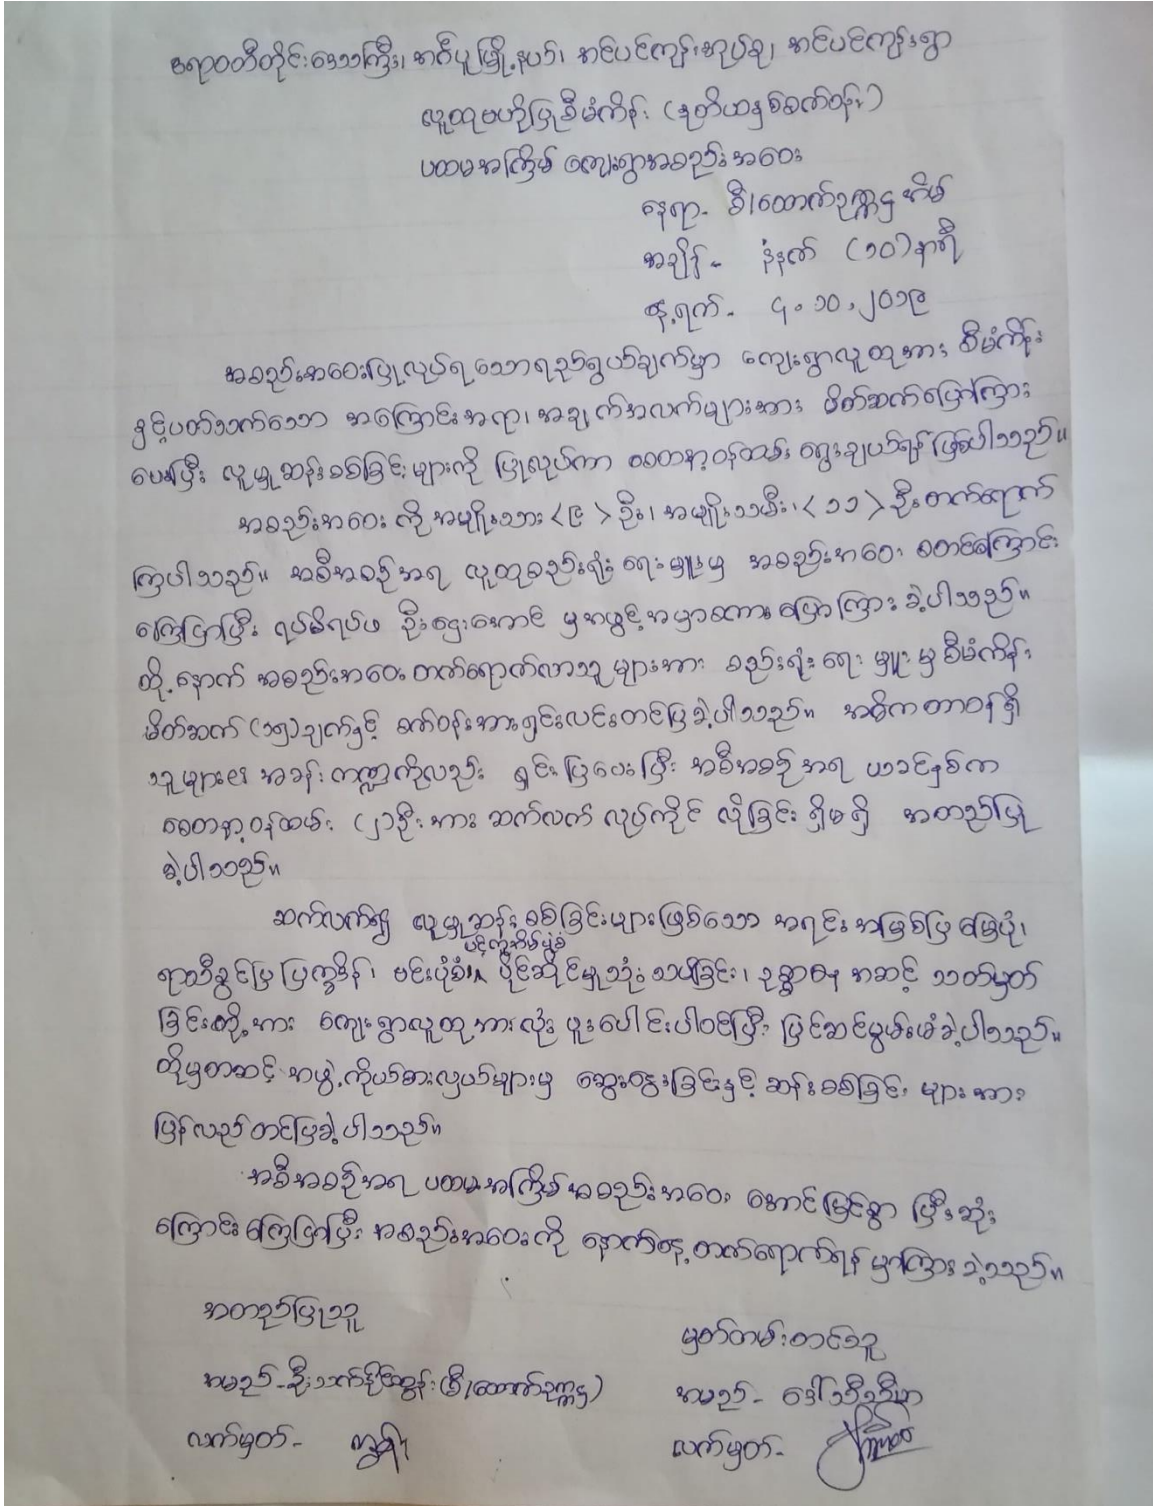 ဧရာဝတီတိုင်းဒေသကြီး၊ အင်္ဂပူမြို့နယ်၊ အင်ပင်ကုန်းအုပ်စု၊ အင်ပင်ကုန်းရွာ
လူထုဗဟိုပြုစီမံကိန်း (ဒုတိယနှစ်စက်ဝန်း)
ပထမအကြိမ် ကျေးရွာအစည်းအဝေး
နေရာ- စီ/ထောက်ဥက္ကဋ္ဌအိမ်
အချိန် - နံနက် (၁၀)နာရီ
နေ့ရက် - ၄.၁၀.၂၀၁၉
အစည်းအဝေးပြုလုပ်ရသောရည်ရွယ်ချက်မှာ ကျေးရွာလူထုအား စီမံကိန်း
နှင့်ပတ်သက်သော အကြောင်းအရာ၊ အချက်အလက်များအား မိတ်ဆက်ပြောကြား
ပေးပြီး လူမှုဆန်းစစ်ခြင်းများကို ပြုလုပ်ကာ စေတနာ့ဝန်ထမ်း ရွေးချယ်ရန် ဖြစ်ပါသည်။
အစည်းအဝေးကို အမျိုးသား <၉> ဦး၊ အမျိုးသမီး <၁၁> ဦး တက်ရောက်
ကြပါသည်။ အစီအစဉ်အရ လူထုစည်းရုံးရေးမှူးမှ အစည်းအဝေး စတင်ကြောင်း
ကြေငြာပြီး ရပ်မိရပ်ဖ ဦးဌေးအောင် မှ အဖွင့်အမှာစကား ပြောကြားခဲ့ပါသည်။
ထို့နောက် အစည်းအဝေးတက်ရောက်လာသူများအား စည်းရုံးရေးမှူးမှ စီမံကိန်း
မိတ်ဆက် (၁၅)ချက်နှင့် စက်ဝန်းအားရှင်းလင်းတင်ပြခဲ့ပါသည်။ အဓိကတာဝန်ရှိ
သူများ၏ အခန်းကဏ္ဍကိုလည်း ရှင်းပြပေးပြီး အစီအစဉ်အရ ယခင်နှစ်က
စေတနာ့ဝန်ထမ်း (၂)ဦးအား ဆက်လက် လုပ်ကိုင် လိုခြင်း ရှိမရှိ အတည်ပြု
ခဲ့ပါသည်။
ဆက်လက်၍ လူမှုဆန်းစစ်ခြင်းများဖြစ်သော အရင်းအမြစ်ပြ မြေပုံ၊
ရာသီခွင်ပြ ပြက္ခဒိန်၊ ဗင်းပုံစံ၊ ပိုင်ဆိုင်မှုသုံးသပ်ခြင်း၊ ဥစ္စာဓန အဆင့် သတ်မှတ်
ခြင်းတို့အား ကျေးရွာလူထုအားလုံး ပူးပေါင်းပါဝင်ပြီး ပြင်ဆင်မွမ်းမံခဲ့ပါသည်။
ထိုမှတဆင့် အဖွဲ့ကိုယ်စားလှယ်များမှ ဆွေးနွေးခြင်းနှင့် ဆန်းစစ်ခြင်း များအား
ပြန်လည်တင်ပြခဲ့ပါသည်။
အစီအစဉ်အရ ပထမအကြိမ်အစည်းအဝေး အောင်မြင်စွာ ပြီးဆုံး
ကြောင်း ကြေငြာပြီး အစည်းအဝေးကို နောက်နေ့ တက်ရောက်ရန် မှာကြားခဲ့သည်။
အတည်ပြုသူ
မှတ်တမ်းတင်သူ
အမည် - ဦးသက်နိုင်ထွန်း (စီ/ထောက်ဥက္ကဋ္ဌ)
အမည် - ဒေါ်သီသီမာ
လက်မှတ် -
လက်မှတ် -